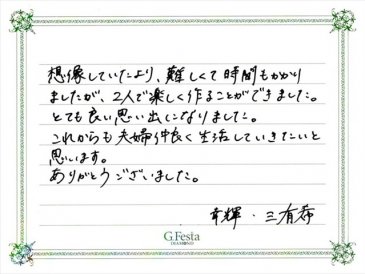 想像していたより、難しくて時間もかかり
ましたが、2人で楽しく作ることができました。
とても良い思い出になりました。
これからも夫婦仲良く生活していきたいと
思います。
ありがとうございました。
幸輝・三有希
G.Festa
DIAMOND